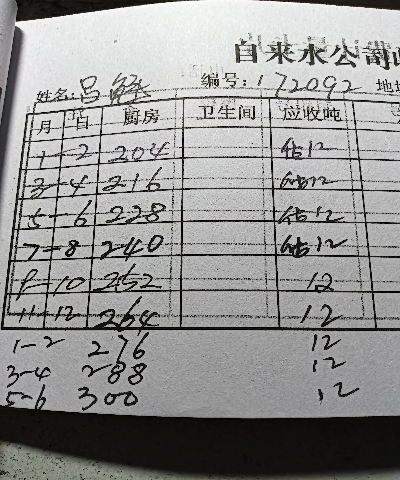 自来水公司
姓名:吕 编号:172092 地
月 日 厨房 卫生间 应收吨
1-2 204 估12
3-4 216 估12
5-6 228 估12
7-8 240 估12
9-10 252 12
11-12 264 12
1-2 276 12
3-4 288 12
5-6 300 12